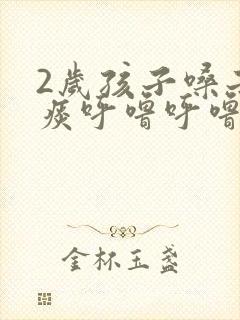 2歲孩子嗓子
痰呼噜呼噜
金杯玉盏